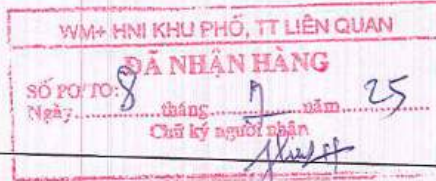 WM+ HNI KHU PHỐ, TT LIÊN QUAN
ĐÃ NHẬN HÀNG
SỐ PO/TO:
Ngày 8 tháng 7 năm 25
Chữ ký người nhận